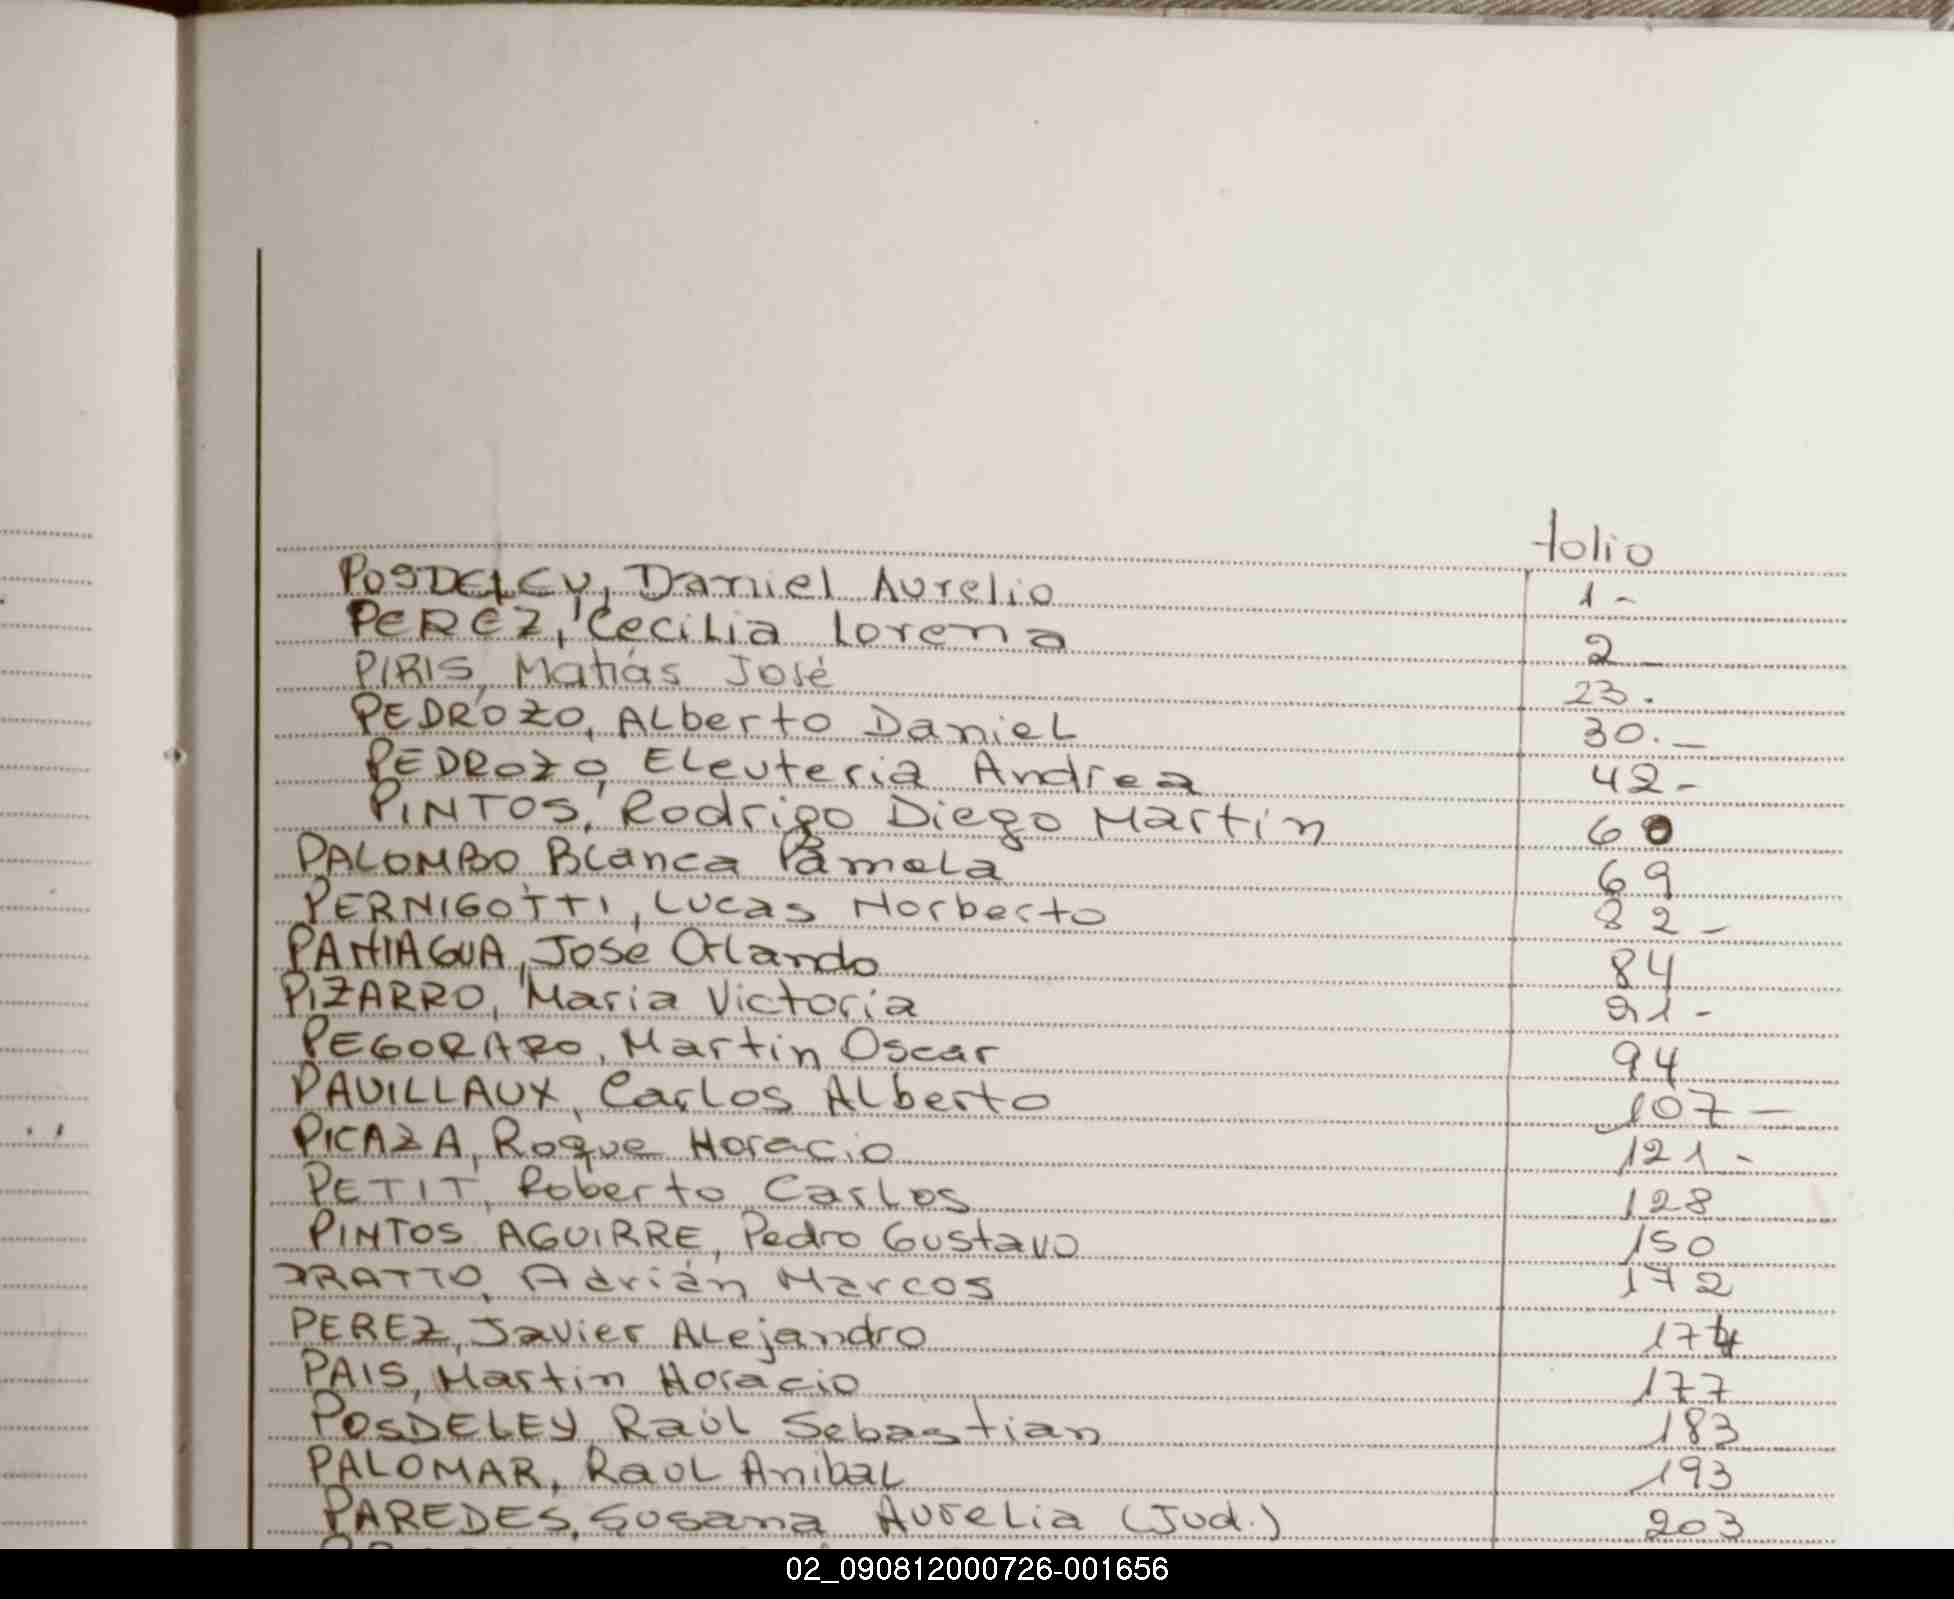 folio
POSDELEY, Daniel Aurelio 1-
PEREZ, Cecilia Lorena 2-
PIRIS, Matías José 23.
PEDROZO, Alberto Daniel 30.-
PEDROZO, Eleuteria Andrea 42-
PINTOS, Rodrigo Diego Martin 60
PALOMBO Blanca Pamela 69
PERNIGOTTI, Lucas Norberto 82-
PANIAGUA, José Orlando 84
PIZARRO, Maria Victoria 91-
PEGORARO, Martin Oscar 94
PAUILLAUX, Carlos Alberto 107-
PICAZA, Roque Horacio 121-
PETIT, Roberto Carlos 128
PINTOS AGUIRRE, Pedro Gustavo 150
PRATTO, Adrián Marcos 172
PEREZ, Javier Alejandro 174
PAIS, Martin Horacio 177
POSDELEY, Raúl Sebastian 183
PALOMAR, Raul Anibal 193
PAREDES, Susana Aurelia (Jud.) 203
02_090812000726-001656